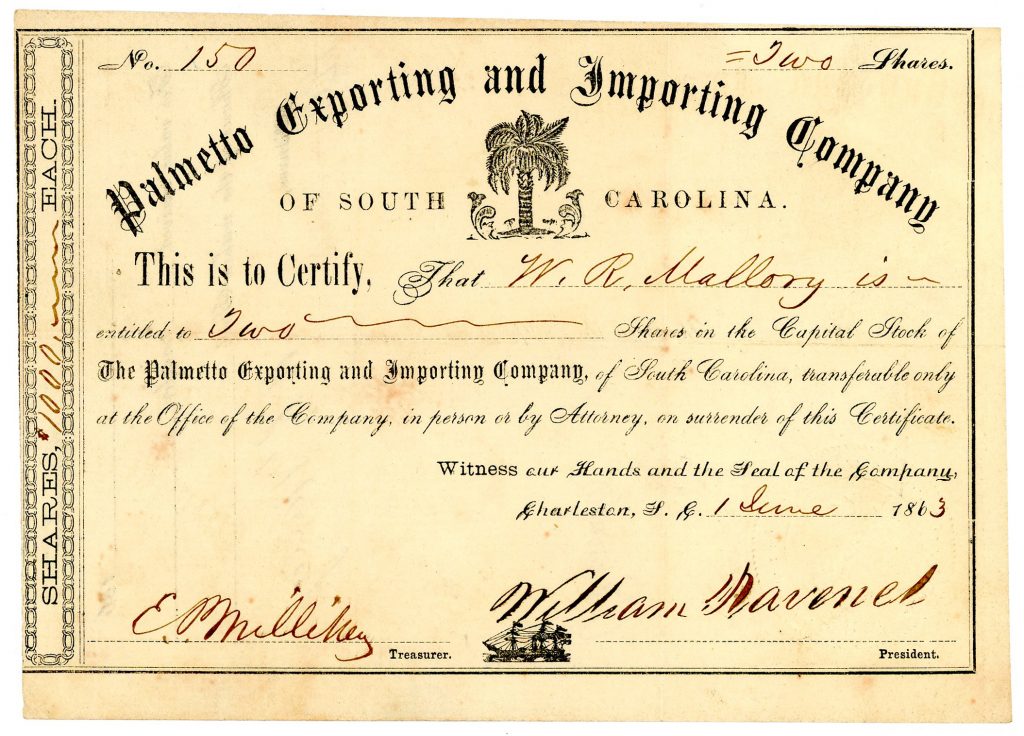 No. 150
= Two Shares.
Palmetto Exporting and Importing Company
OF SOUTH CAROLINA.
This is to Certify, That W. R. Mallory is
entitled to Two Shares in the Capital Stock of
The Palmetto Exporting and Importing Company, of South Carolina, transferable only
at the Office of the Company, in person or by Attorney, on surrender of this Certificate.
Witness our Hands and the Seal of the Company,
Charleston, S. C. 1 June 1863
E. P. Milliken
Treasurer.
William Ravenel
President.
SHARES, $1000, EACH.